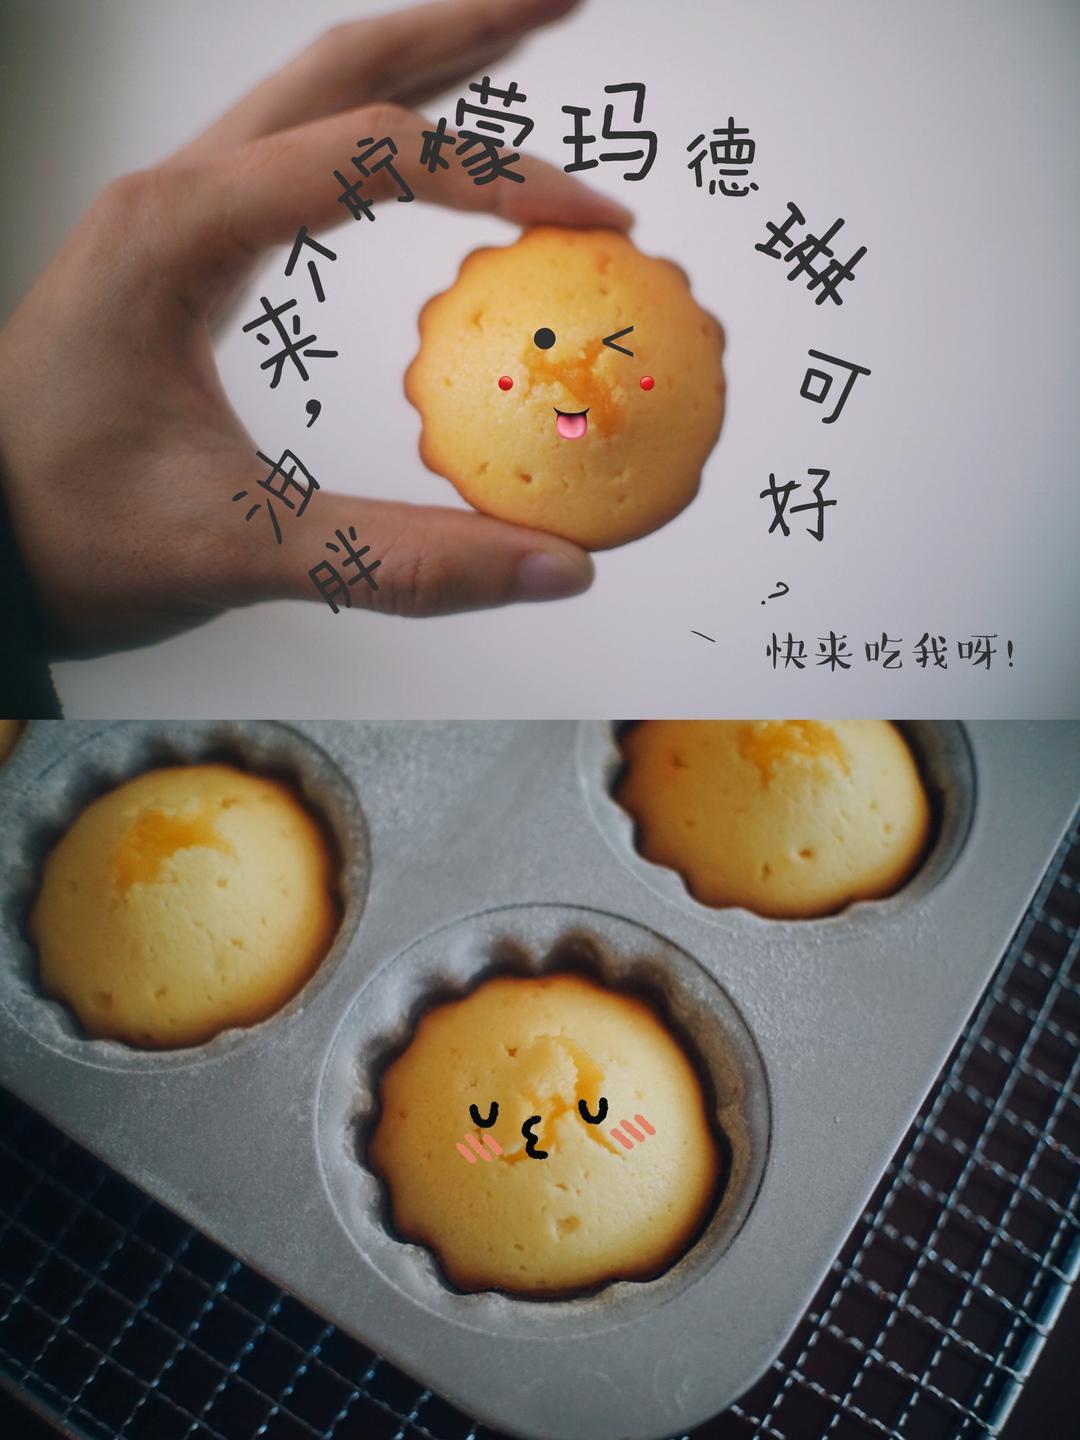 胖油，来个柠檬玛德琳可好？
快来吃我呀！